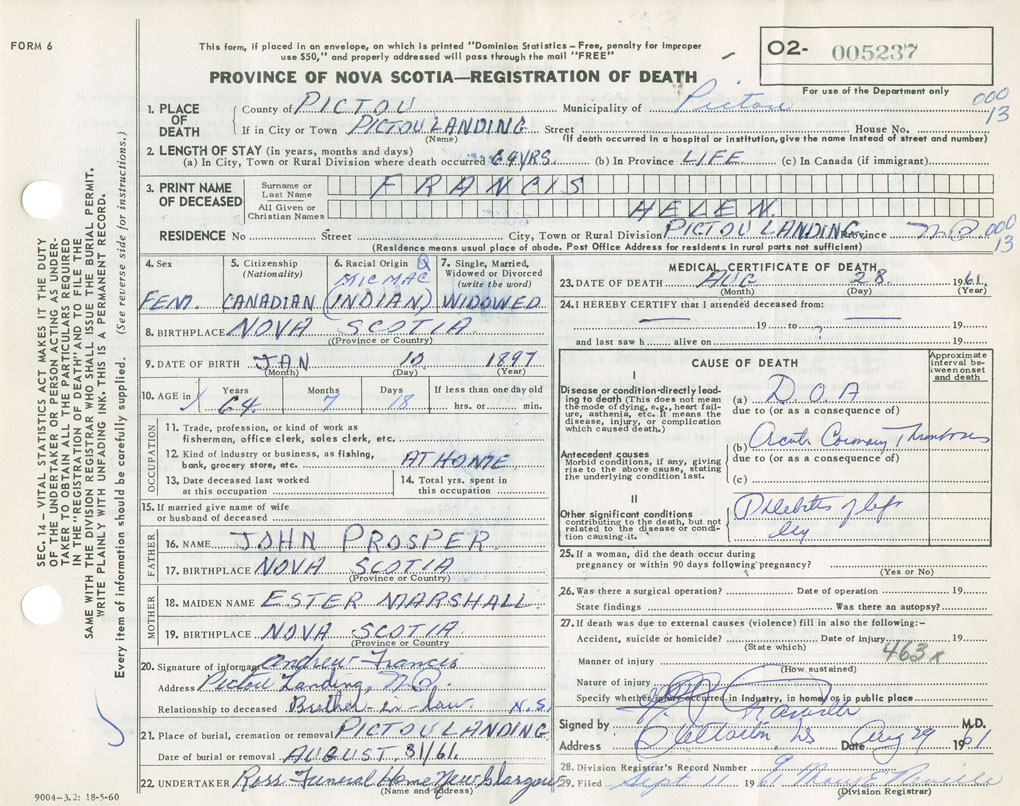 FORM 6
This form, if placed in an envelope, on which is printed "Dominion Statistics – Free, penalty for improper
use $50," and properly addressed will pass through the mail "FREE"
O2- 005237
PROVINCE OF NOVA SCOTIA—REGISTRATION OF DEATH
For use of the Department only
1. PLACE OF DEATH
County of PICTOU Municipality of Pictou 000 13
If in City or Town PICTOU LANDING Street House No.
(Name) (If death occurred in a hospital or institution, give the name instead of street and number)
2. LENGTH OF STAY (in years, months and days)
(a) In City, Town or Rural Division where death occurred 64 YRS. (b) In Province LIFE (c) In Canada (if immigrant)
3. PRINT NAME OF DECEASED
Surname or Last Name FRANCIS
All Given or Christian Names HELEN
RESIDENCE No Street City, Town or Rural Division PICTOU LANDING Province N.S. 000 13
(Residence means usual place of abode. Post Office Address for residents in rural parts not sufficient)
4. Sex FEM.
5. Citizenship (Nationality) CANADIAN
6. Racial Origin MICMAC (INDIAN)
7. Single, Married, Widowed or Divorced (write the word) WIDOWED
8. BIRTHPLACE NOVA SCOTIA
(Province or Country)
9. DATE OF BIRTH JAN 10 1897
(Month) (Day) (Year)
10. AGE in Years 64 Months 7 Days 18 If less than one day old hrs. or min.
OCCUPATION
11. Trade, profession, or kind of work as fisherman, office clerk, sales clerk, etc.
12. Kind of industry or business, as fishing, bank, grocery store, etc. AT HOME
13. Date deceased last worked at this occupation
14. Total yrs. spent in this occupation
15. If married give name of wife or husband of deceased
FATHER
16. NAME JOHN PROSPER
17. BIRTHPLACE NOVA SCOTIA
(Province or Country)
MOTHER
18. MAIDEN NAME ESTER MARSHALL
19. BIRTHPLACE NOVA SCOTIA
(Province or Country)
20. Signature of informant Andrew Francis
Address Pictou Landing, N.S.
Relationship to deceased Brother-in-law N.S.
21. Place of burial, cremation or removal PICTOU LANDING
Date of burial or removal AUGUST 31/61.
22. UNDERTAKER Ross Funeral Home New Glasgow
(Name and address)
MEDICAL CERTIFICATE OF DEATH
23. DATE OF DEATH AUG 28 1961
(Month) (Day) (Year)
24. I HEREBY CERTIFY that I attended deceased from:
19 to 19
and last saw h alive on 19
CAUSE OF DEATH
Approximate interval between onset and death
I
Disease or condition directly leading to death (This does not mean the mode of dying, e.g., heart failure, asthenia, etc. It means the disease, injury, or complication which caused death.)
(a) D.O.A
due to (or as a consequence of)
(b) Acute Coronary Thrombosis
Antecedent causes
Morbid conditions, if any, giving rise to the above cause, stating the underlying condition last.
due to (or as a consequence of)
(c)
II
Other significant conditions contributing to the death, but not related to the disease or condition causing it.
Phlebitis of left
leg
25. If a woman, did the death occur during
pregnancy or within 90 days following pregnancy?
(Yes or No)
26. Was there a surgical operation? Date of operation 19
State findings Was there an autopsy?
27. If death was due to external causes (violence) fill in also the following:-
Accident, suicide or homicide? Date of injury 19
(State which)
463x
Manner of injury
(How sustained)
Nature of injury
Specify whether injury occurred in industry, in home, or in public place
Signed by M.D.
Address Date Aug 29 1961
28. Division Registrar's Record Number
29. Filed Sept 11 1961
(Division Registrar)
SEC. 14 – VITAL STATISTICS ACT MAKES IT THE DUTY
OF THE UNDERTAKER OR PERSON ACTING AS UNDER-
TAKER TO OBTAIN ALL THE PARTICULARS REQUIRED
IN THE "REGISTRATION OF DEATH" AND TO FILE THE
SAME WITH THE DIVISION REGISTRAR WHO SHALL ISSUE THE BURIAL PERMIT.
WRITE PLAINLY WITH UNFADING INK. THIS IS A PERMANENT RECORD.
Every item of information should be carefully supplied. (See reverse side for instructions.)
9004-3.2: 18-5-60